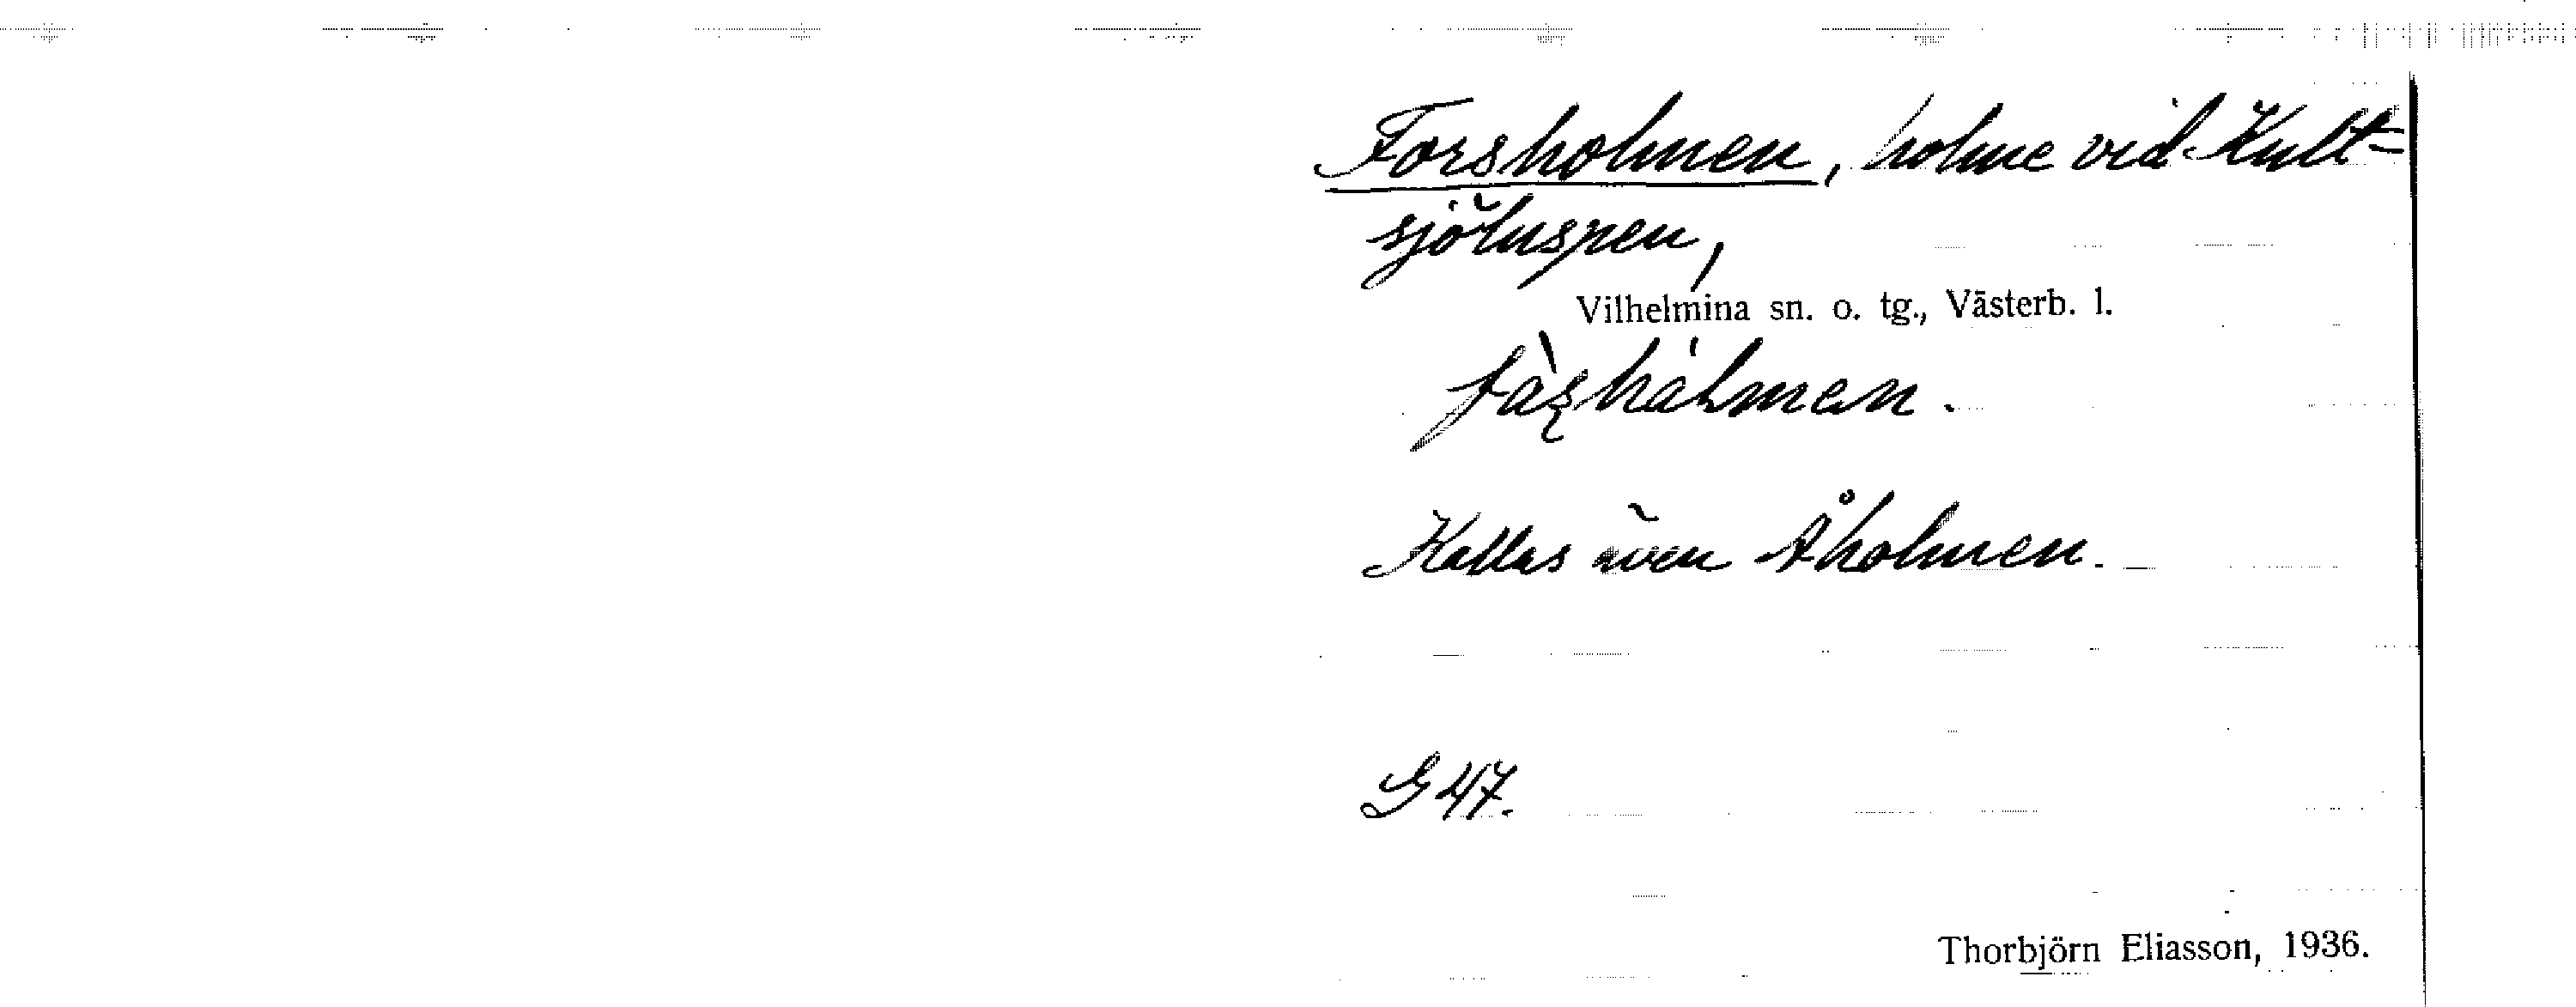 Forsholmen, holme vid Kult-
sjöluspen,
Vilhelmina sn. o. tg., Västerb. l.
Kallas även Åholmen.
G 47.
Thorbjörn Eliasson, 1936.